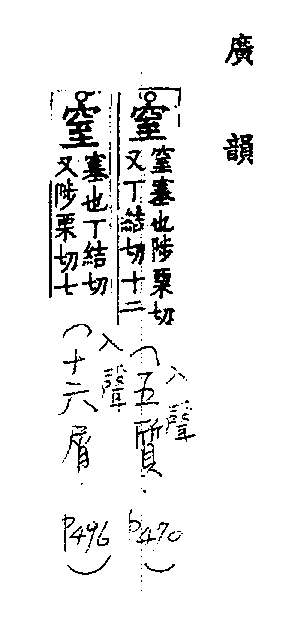 廣韻
窒 窒塞也陟栗切
又丁結切十二
入聲
(五質. p470)
窒 塞也丁結切
又陟栗切七
入聲
(十六屑. p496)